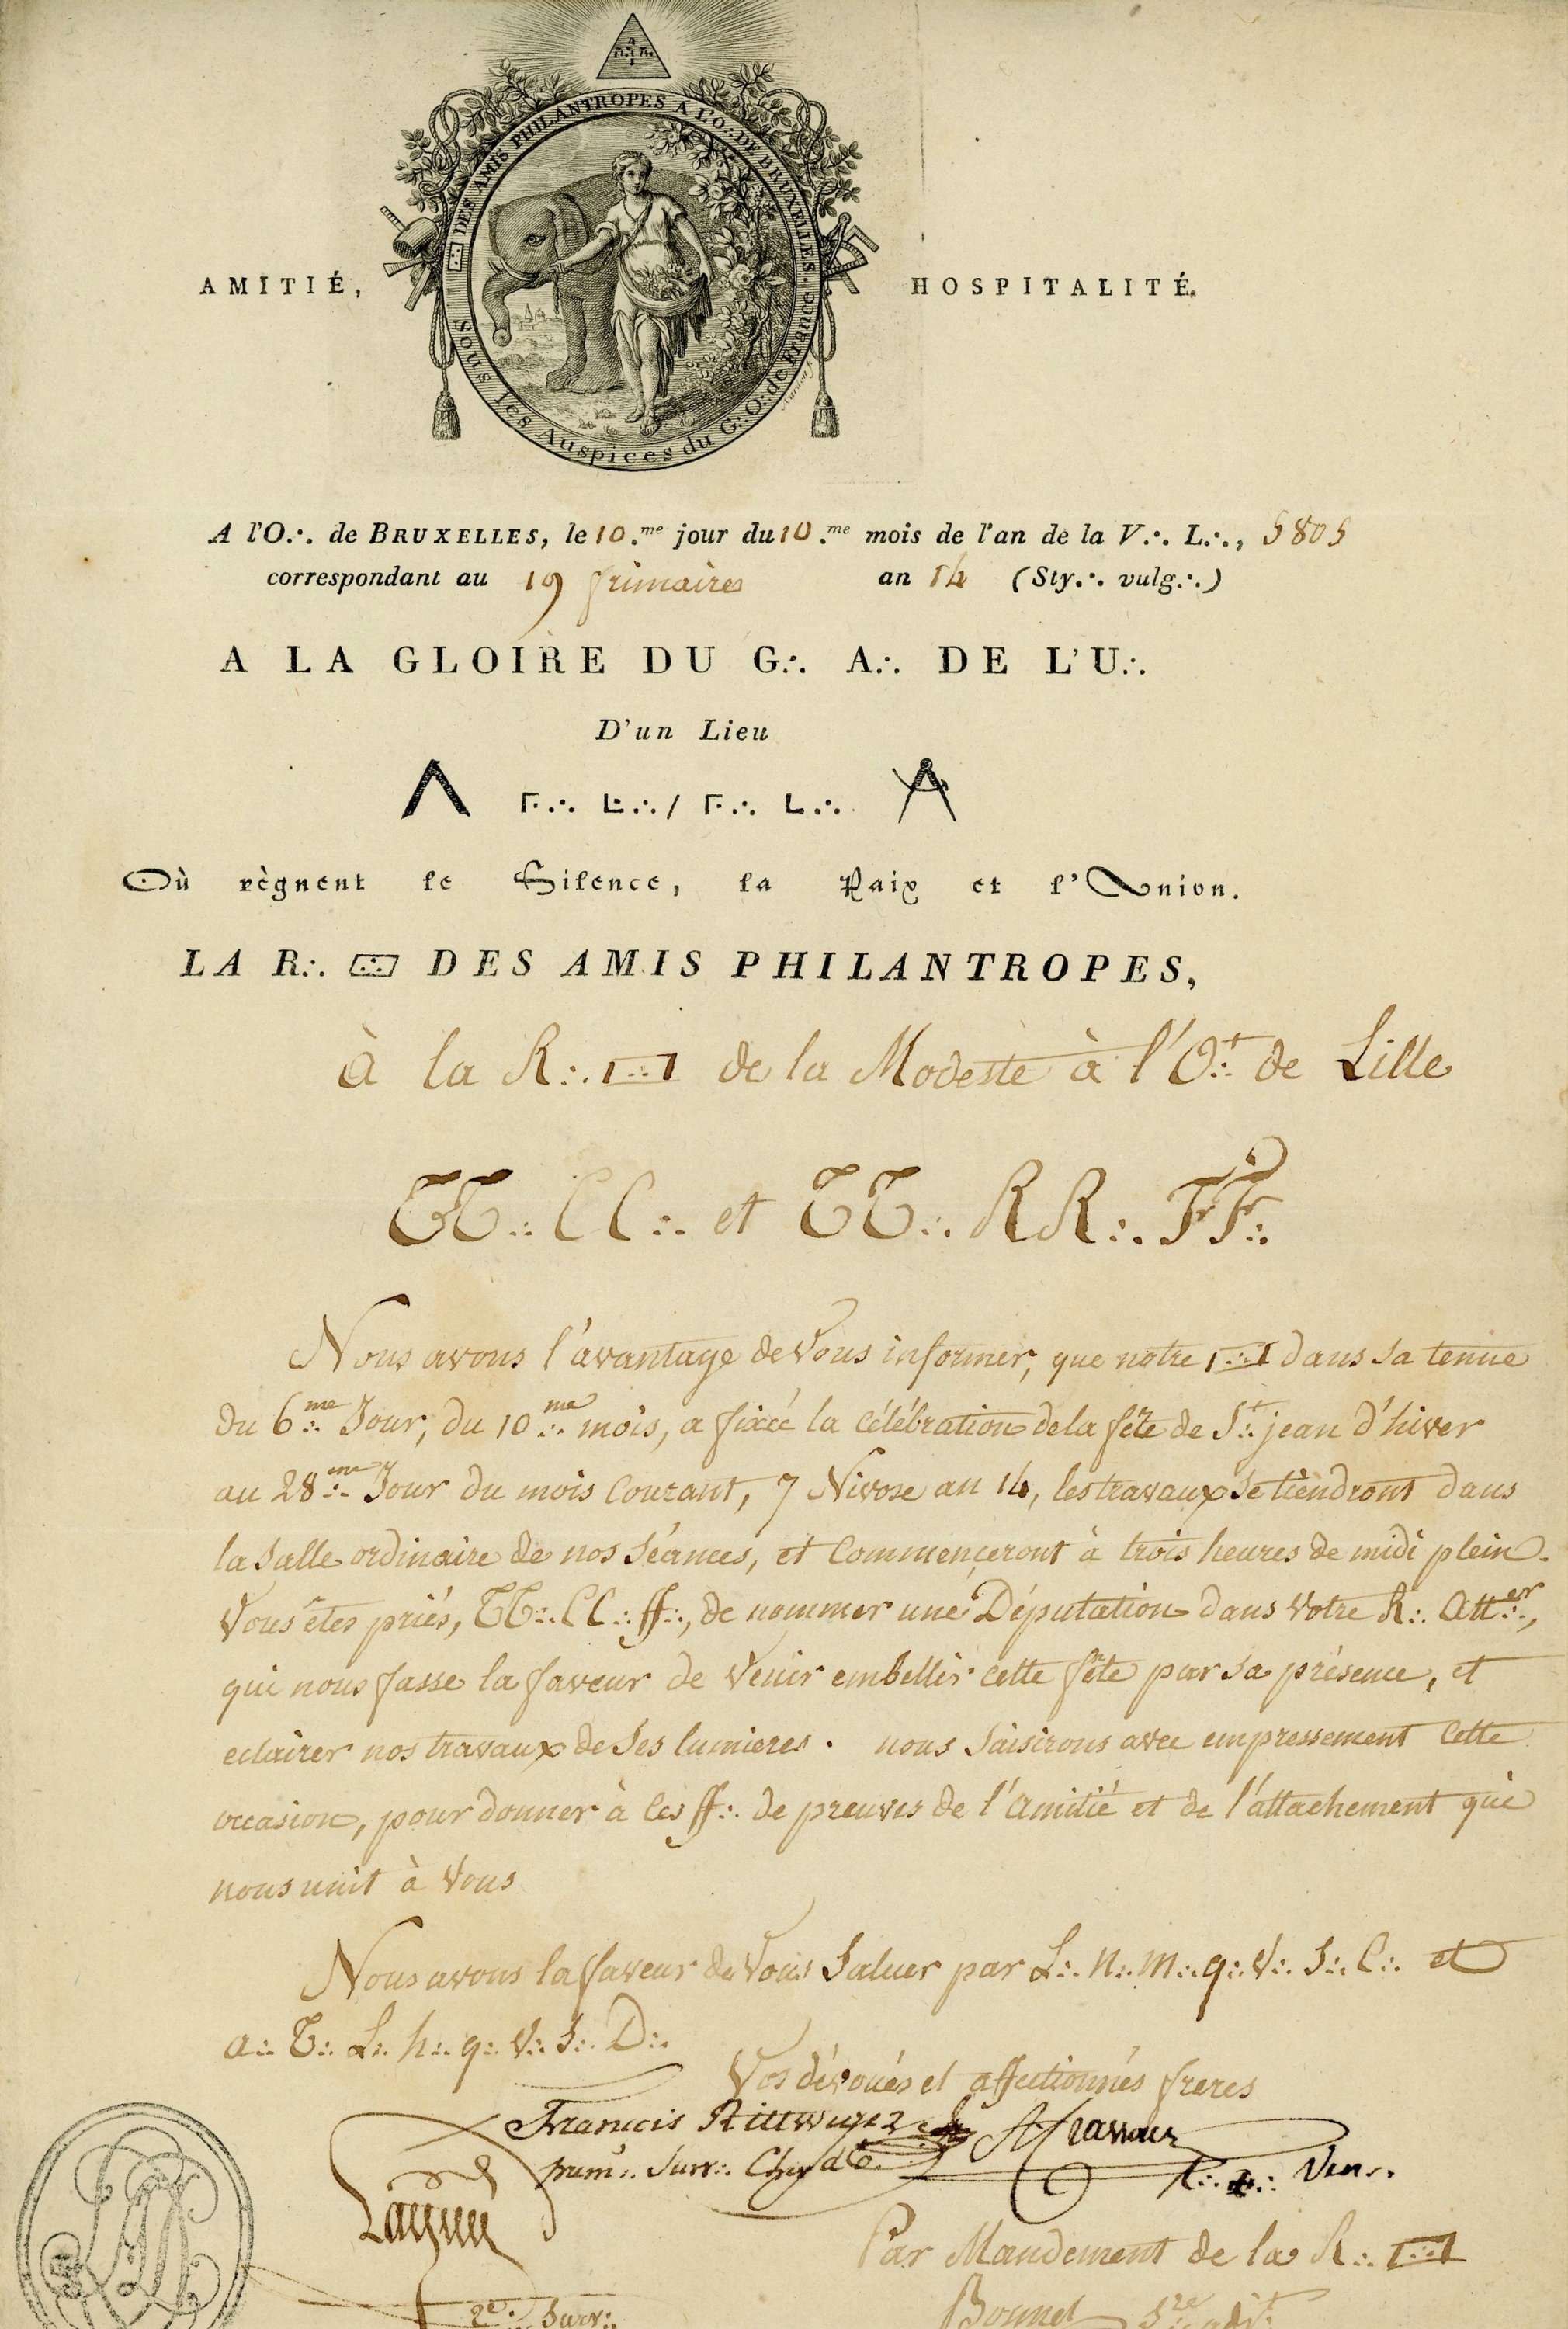 DES AMIS PHILANTROPES A L'O∴ DE BRUXELLES.
Sous les Auspices du G∴ O∴ de France
AMITIÉ, HOSPITALITÉ.
A l'O∴ de BRUXELLES, le 10.me jour du 10.me mois de l'an de la V∴ L∴, 5805
correspondant au 19 frimaire an 14 (Sty∴ vulg∴)
A LA GLOIRE DU G∴ A∴ DE L'U∴
D'un Lieu
Où règnent le Silence, la Paix et l'Union.
LA R∴ DES AMIS PHILANTROPES,
à la R∴ de la Modeste à l'O∴t de Lille
TT∴ CC∴ et TT∴ RR∴ FF∴
Nous avons l'avantage de Vous informer, que notre dans sa tenue
du 6∴me Jour, du 10∴me mois, a fixée la Célébration de la fête de St∴ jean d'hiver
au 28∴me Jour du mois Courant, 7 Nivose an 14, les travaux se tiendront dans
la salle ordinaire de nos séances, et Commenceront à trois heures de midi plein.
Vous êtes priés, TT∴ CC∴ ff∴, de nommer une Députation dans Votre R∴ Att∴er,
qui nous fasse la faveur de Venir embellir cette fête par sa présence, et
eclairer nos travaux de ses lumieres. nous saisirons avec empressement Cette
occasion, pour donner à Ces ff∴ de preuves de l'Amitié et de l'attachement què
nous unit à Vous
Nous avons la faveur de Vous Saluer par L∴ N∴ M∴ q∴ V∴ S∴ C∴ et
a∴ T∴ L∴ h∴ q∴ V∴ S∴ D∴
Vos dévoués et affectionnés freres
Francis
prem∴ Surv∴
Ven∴
Par Mandement de la R∴
2e∴ Surv∴
Bonnet